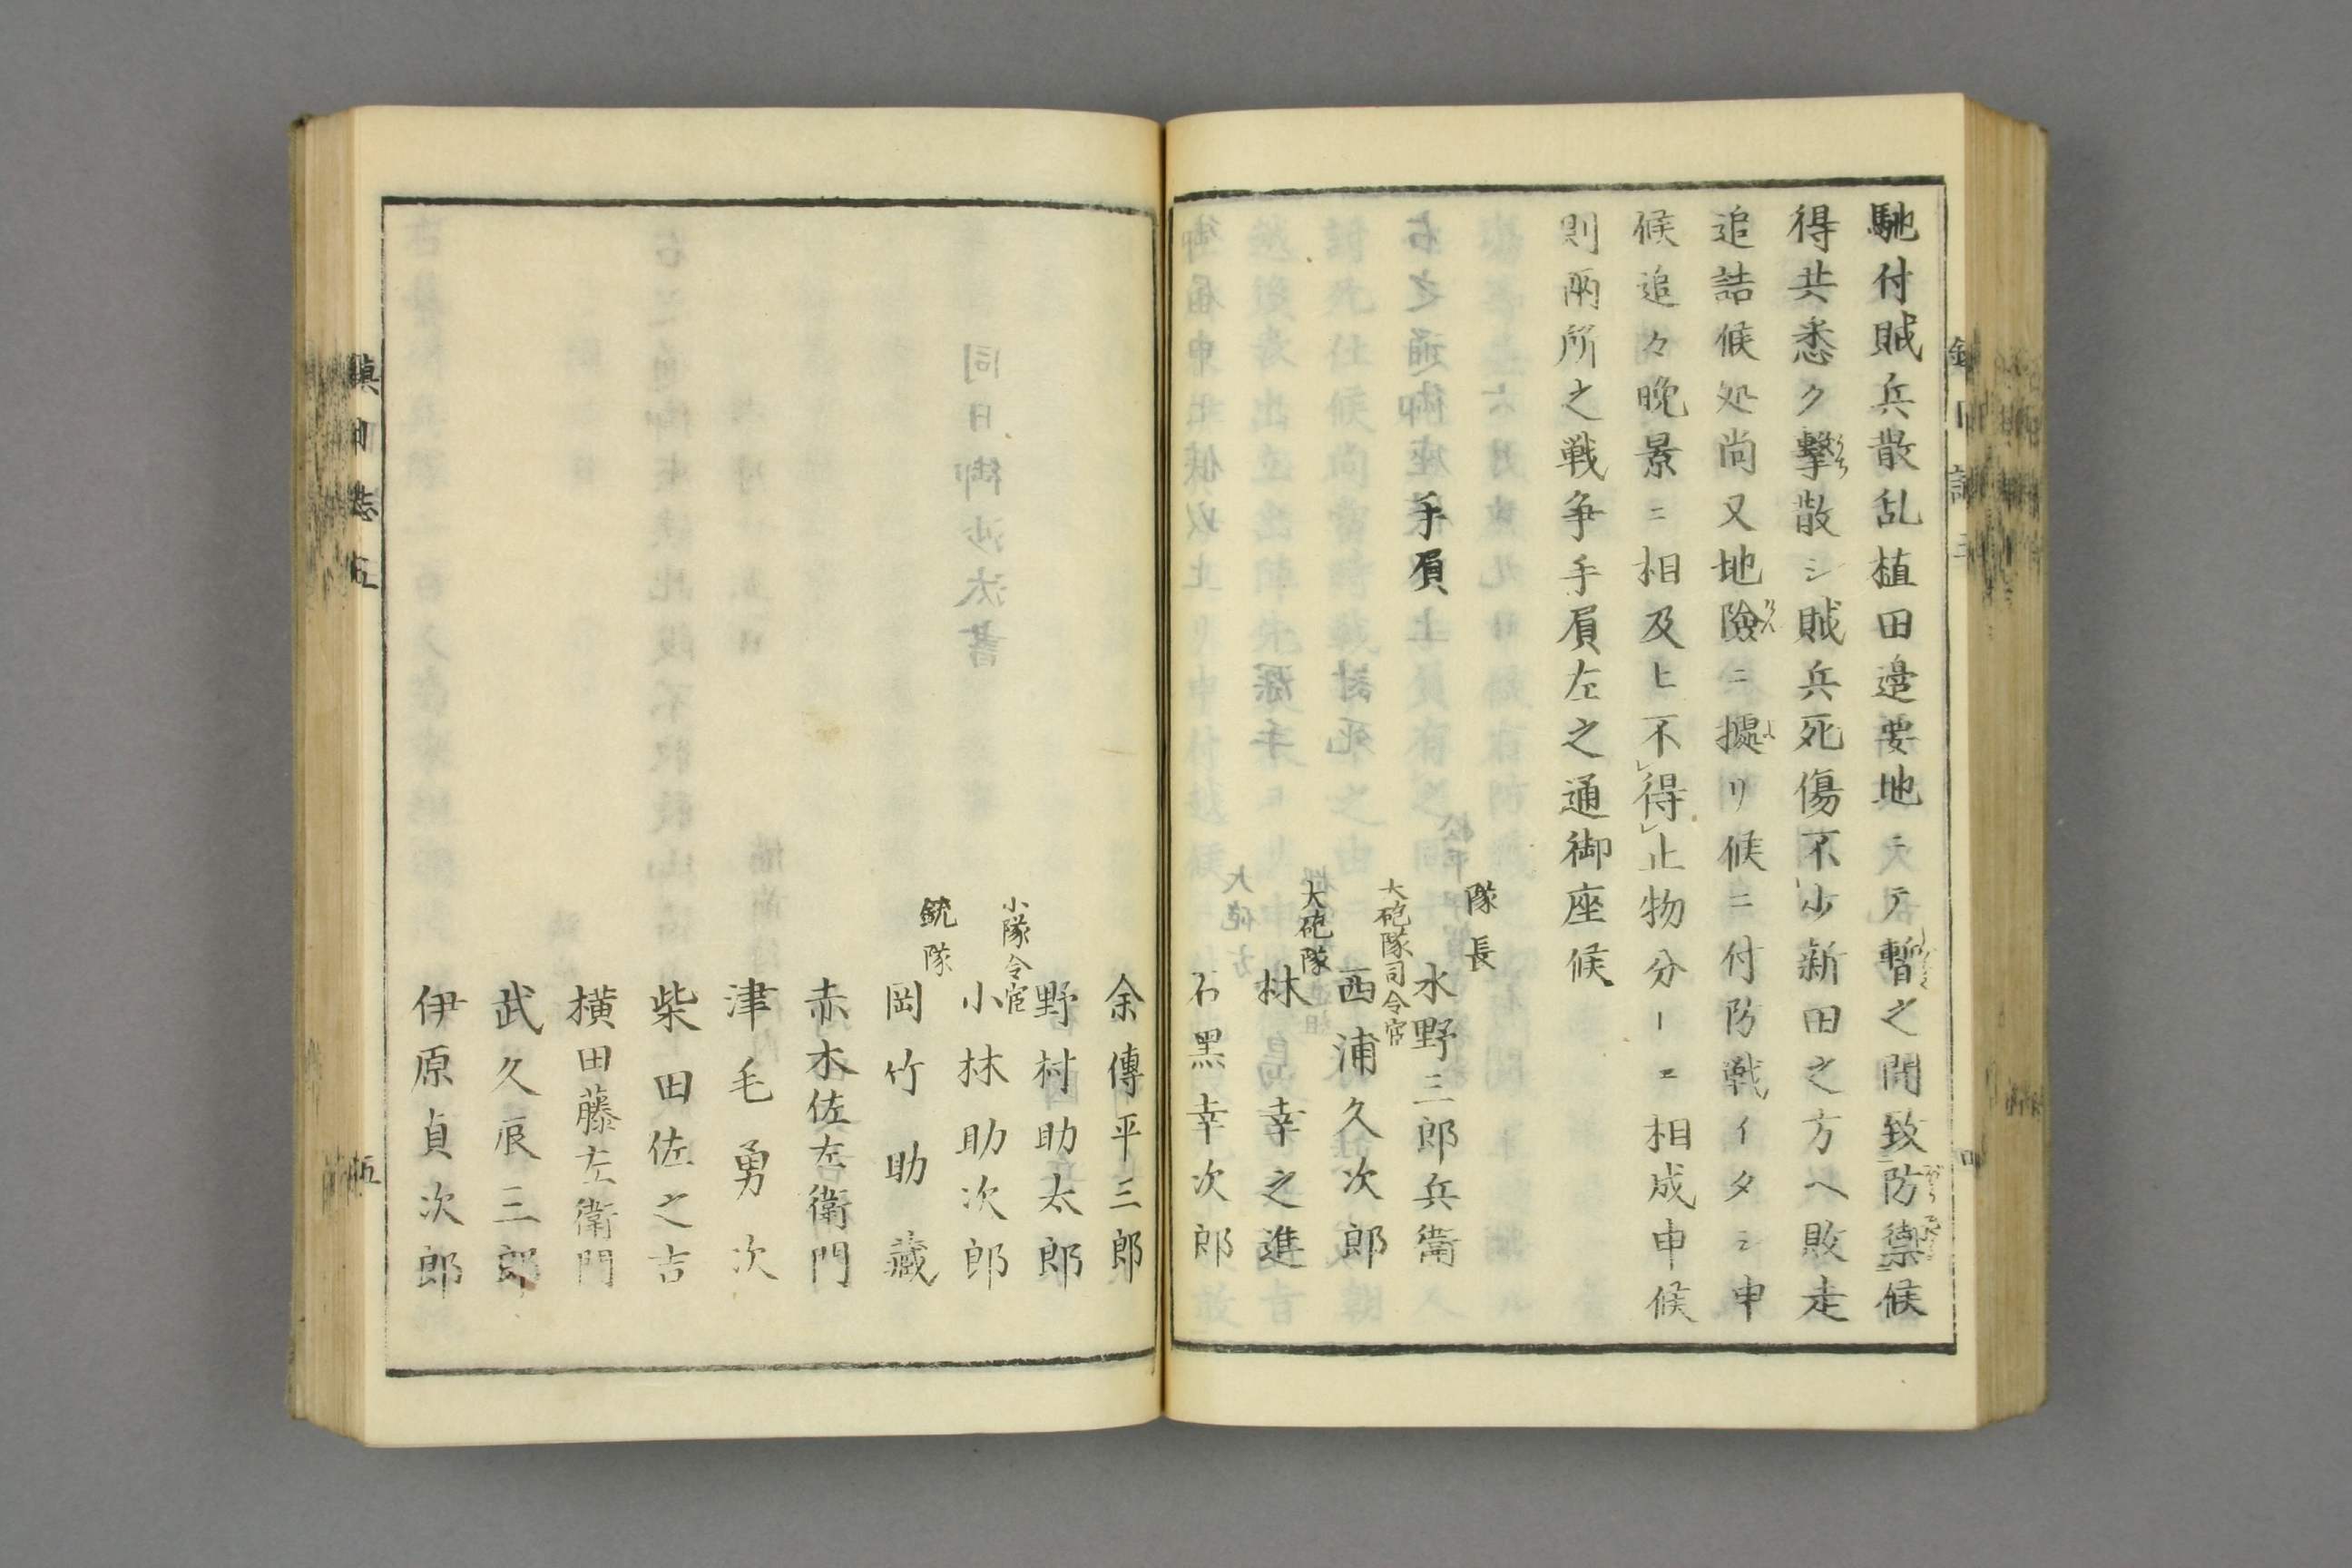 馳付賊兵散乱植田邉要地ニテ暫之間致防禦候
得共悉ク撃散シ賊兵死傷不少新田之方ヘ敗走
追詰候処尚又地險ニ據リ候ニ付防戦イタシ申
候追々晩景ニ相及ヒ不得止物分ーヱ相成申候
則両所之戦争手屓左之通御座候
手屓
隊長
水野三郎兵衛
大砲隊司令官
西浦久次郎
大砲隊
林幸之進
石黒幸次郎
余傳平三郎
野村助太郎
小隊令官
小林助次郎
銃隊
岡竹助藏
赤木佐左衛門
津毛勇次
柴田佐之吉
横田藤左衛門
武久辰三郎
伊原貞次郎
鎮日志五
五